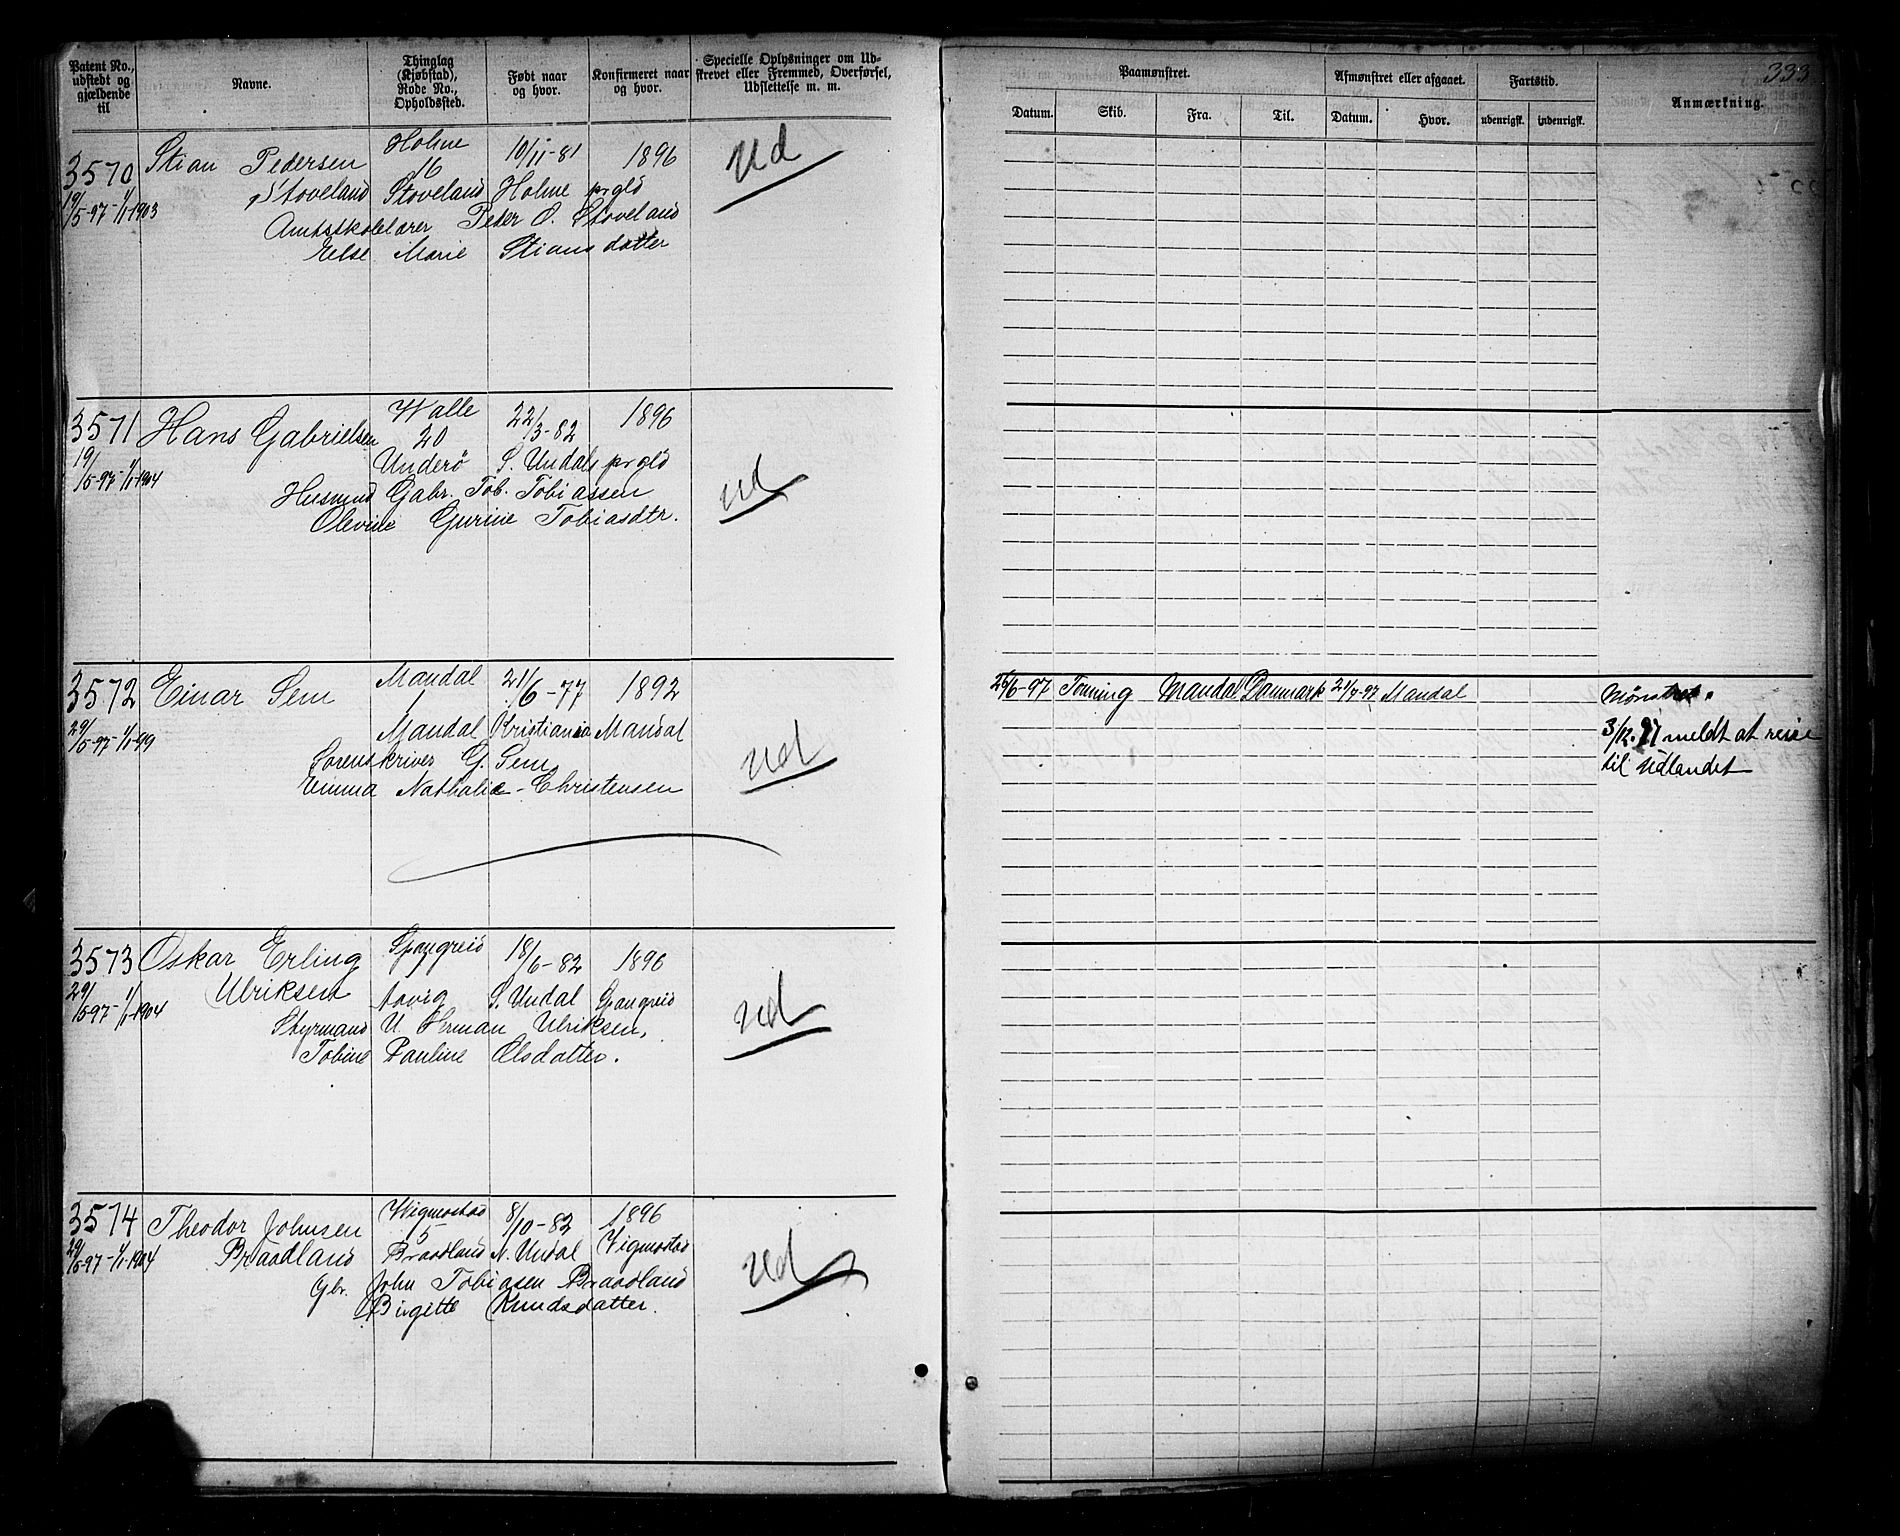 Patent No., udstedt og gjældende til
Navne.
Thinglag (Kjøbstad), Rode No., Opholdssted.
Født naar og hvor.
Konfirmeret naar og hvor.
Specielle Oplysninger om Udskrevet eller Fremmed, Overførsel, Udslettelse m. m.
Paamønstret.
Afmønstret eller afgaaet.
Fartstid.
333
Datum. Skib. Fra. Til. Datum. Hvor. udenrigsk. indenrigsk. Anmærkning.
3570 Stian Pedersen Holme 10/11-81 1896 Ud
16
19/5-97-1/1-1903 Stoveland Stoveland Holme prgld
Amtsskolelærer Peder O. Stoveland
Else Marie Stiansdatter
3571 Hans Gabrielsen Halle 22/3-82 1896
20
19/5-97-1/1-1904 Underø S. Undals prgld Ud
Husmnd Gabr. Tob. Tobiassen
Olevine Gurine Tobiasdtr.
3572 Einar Sem Mandal 21/6-77 1892 26/6-97 Tonning Mandal Danmark 21/7-97 Mandal Mønstret.
1
29/5-97-1/1-99 Mandal Kristiania Mandal Ud 3/12.97 meldt at reise
Sorenskriver G. Sem til Udlandet
Emma Nathalie Christensen
3573 Oskar Erling Spangreid 18/6-82 1896
29/5-97-1/1-1904 Ulriksen Aavig S. Undal Spangreid Ud
Styrmand U. Herman Ulriksen,
Tobine Pauline Olsdatter.
3574 Theodor Johnsen Vigmostad 8/10-82 1896
5
29/5-97-1/1-1904 Braadland Braadland N. Undal Vigmostad Ud
Gbr. John Tobiasen Braadland
Birgitte Knudsdatter.